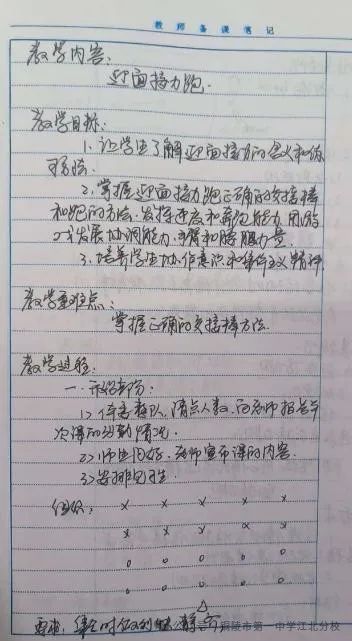 教师备课笔记
教学内容:
迎面接力跑.
教学目标:
1. 让学生了解迎面接力的含义和练
习方法.
2. 掌握迎面接力跑正确的交接棒
和跑的方法. 发挥速度和奔跑能力. 同时
发展协调能力. 和腰腹力量.
3. 培养学生协作意识和集体主义精神
教学重难点:
掌握正确的交接棒方法.
教学过程:
一. 开始部分:
1> 体委整队, 清点人数. 向老师报告
次课的出勤情况.
2> 师生问好. 老师宣布课的内容.
3> 安排见习生.
组织:
x x x x x
x x x x x
o o o o o
o o o o o
△
要求: 集合时做到快 静 齐
铜陵市第一中学江北分校